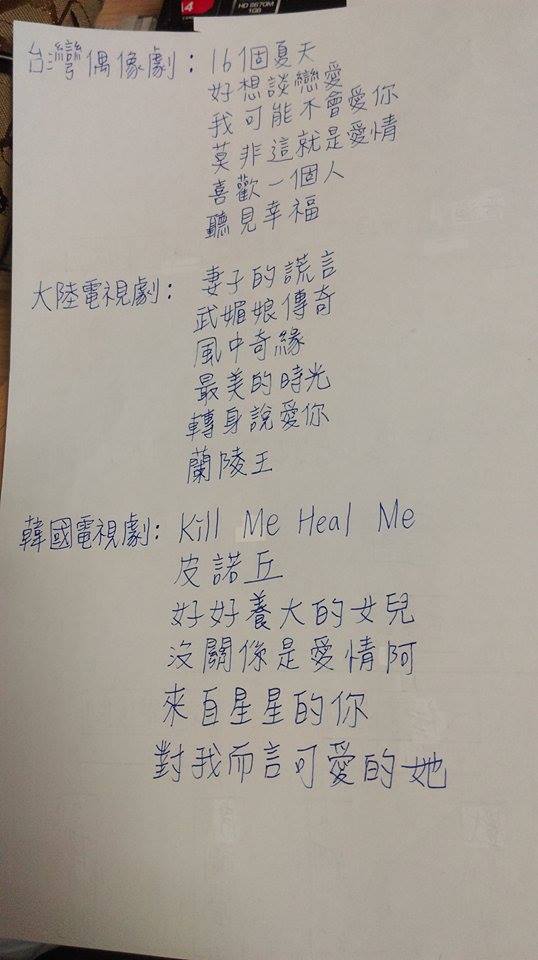 HD 8670M
1GB
4
台灣偶像劇：16個夏天
好想談戀愛
我可能不會愛你
莫非這就是愛情
喜歡一個人
聽見幸福
大陸電視劇：妻子的謊言
武媚娘傳奇
風中奇緣
最美的時光
轉身說愛你
蘭陵王
韓國電視劇：Kill Me Heal Me
皮諾丘
好好養大的女兒
沒關係是愛情阿
來自星星的你
對我而言可愛的她